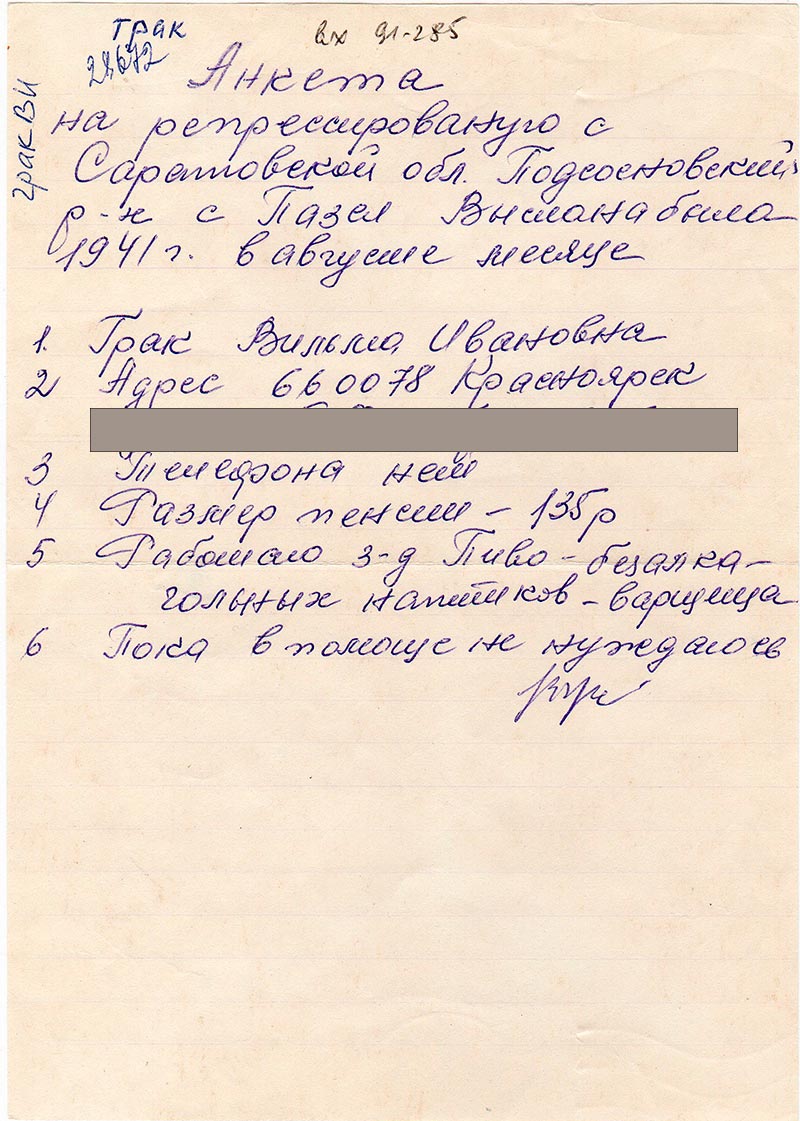 Грак
вх 91-285
28672
Грак ВИ
Анкета
на репрессированую с
Саратовской обл. Подсосновский
р-н с Пазел Выслана была
1941 г. в августе месяце
1. Грак Вильма Ивановна
2 Адрес 660078 Красноярск
3 Телефона нет
4 Размер пенсии – 135р
5 Работаю з-д Пиво-безалка-
гольных напитков – варщица
6 Пока в помоще не нуждаюсь